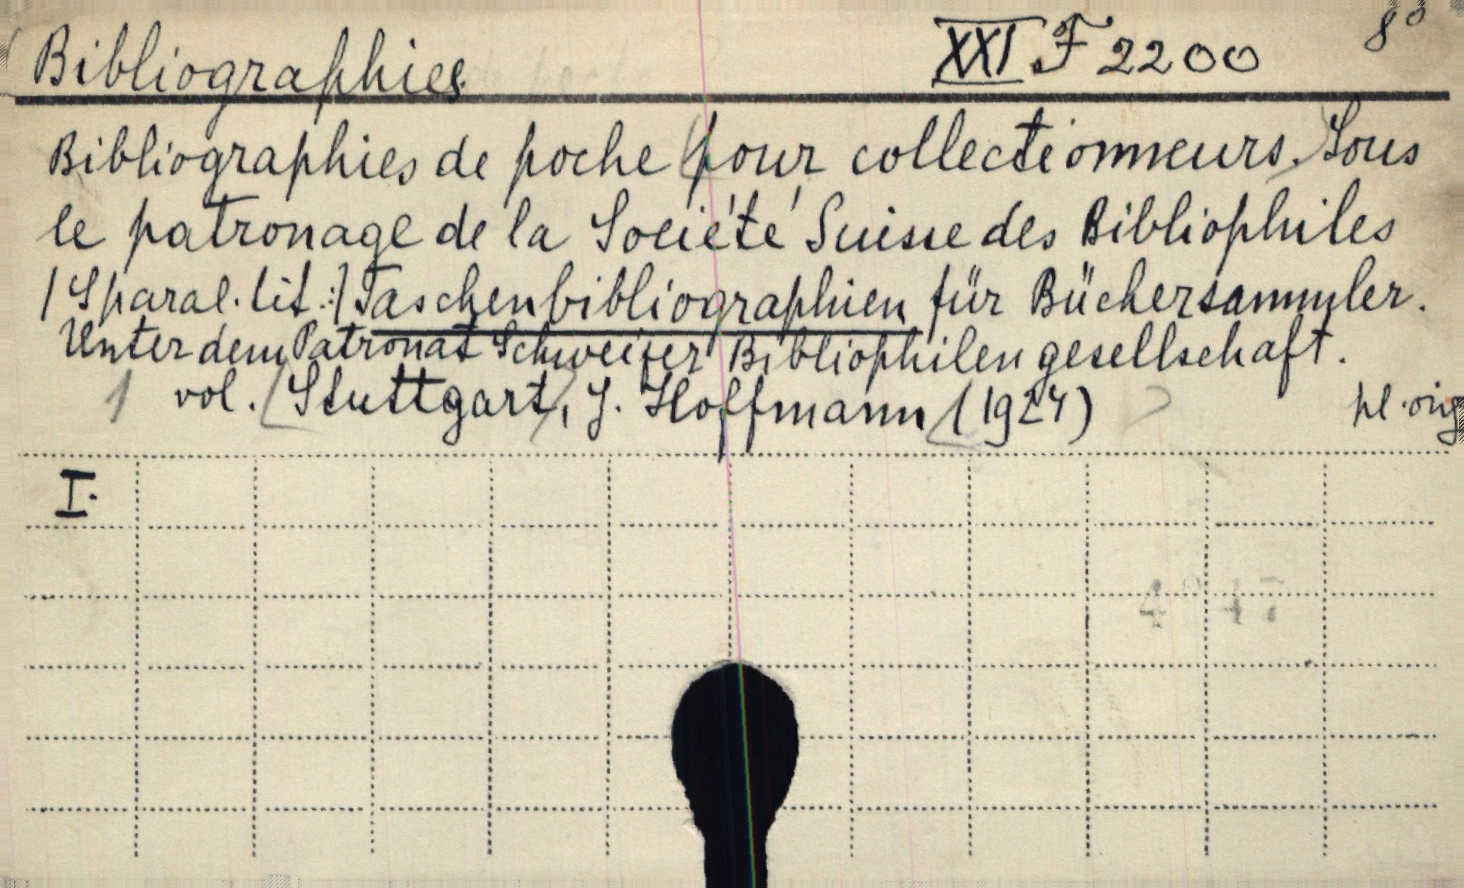 Bibliographies XXI F 2200 8°
Bibliographies de poche pour collectionneurs. Sous
le patronage de la Société Suisse des Bibliophiles
/Sparal. tit.:/ Taschenbibliographien für Büchersammler.
Unter dem Patronat Schweizer Bibliophilengesellschaft.
1 vol. (Stuttgart), J. Hoffmann (1924) pl. orig
I.